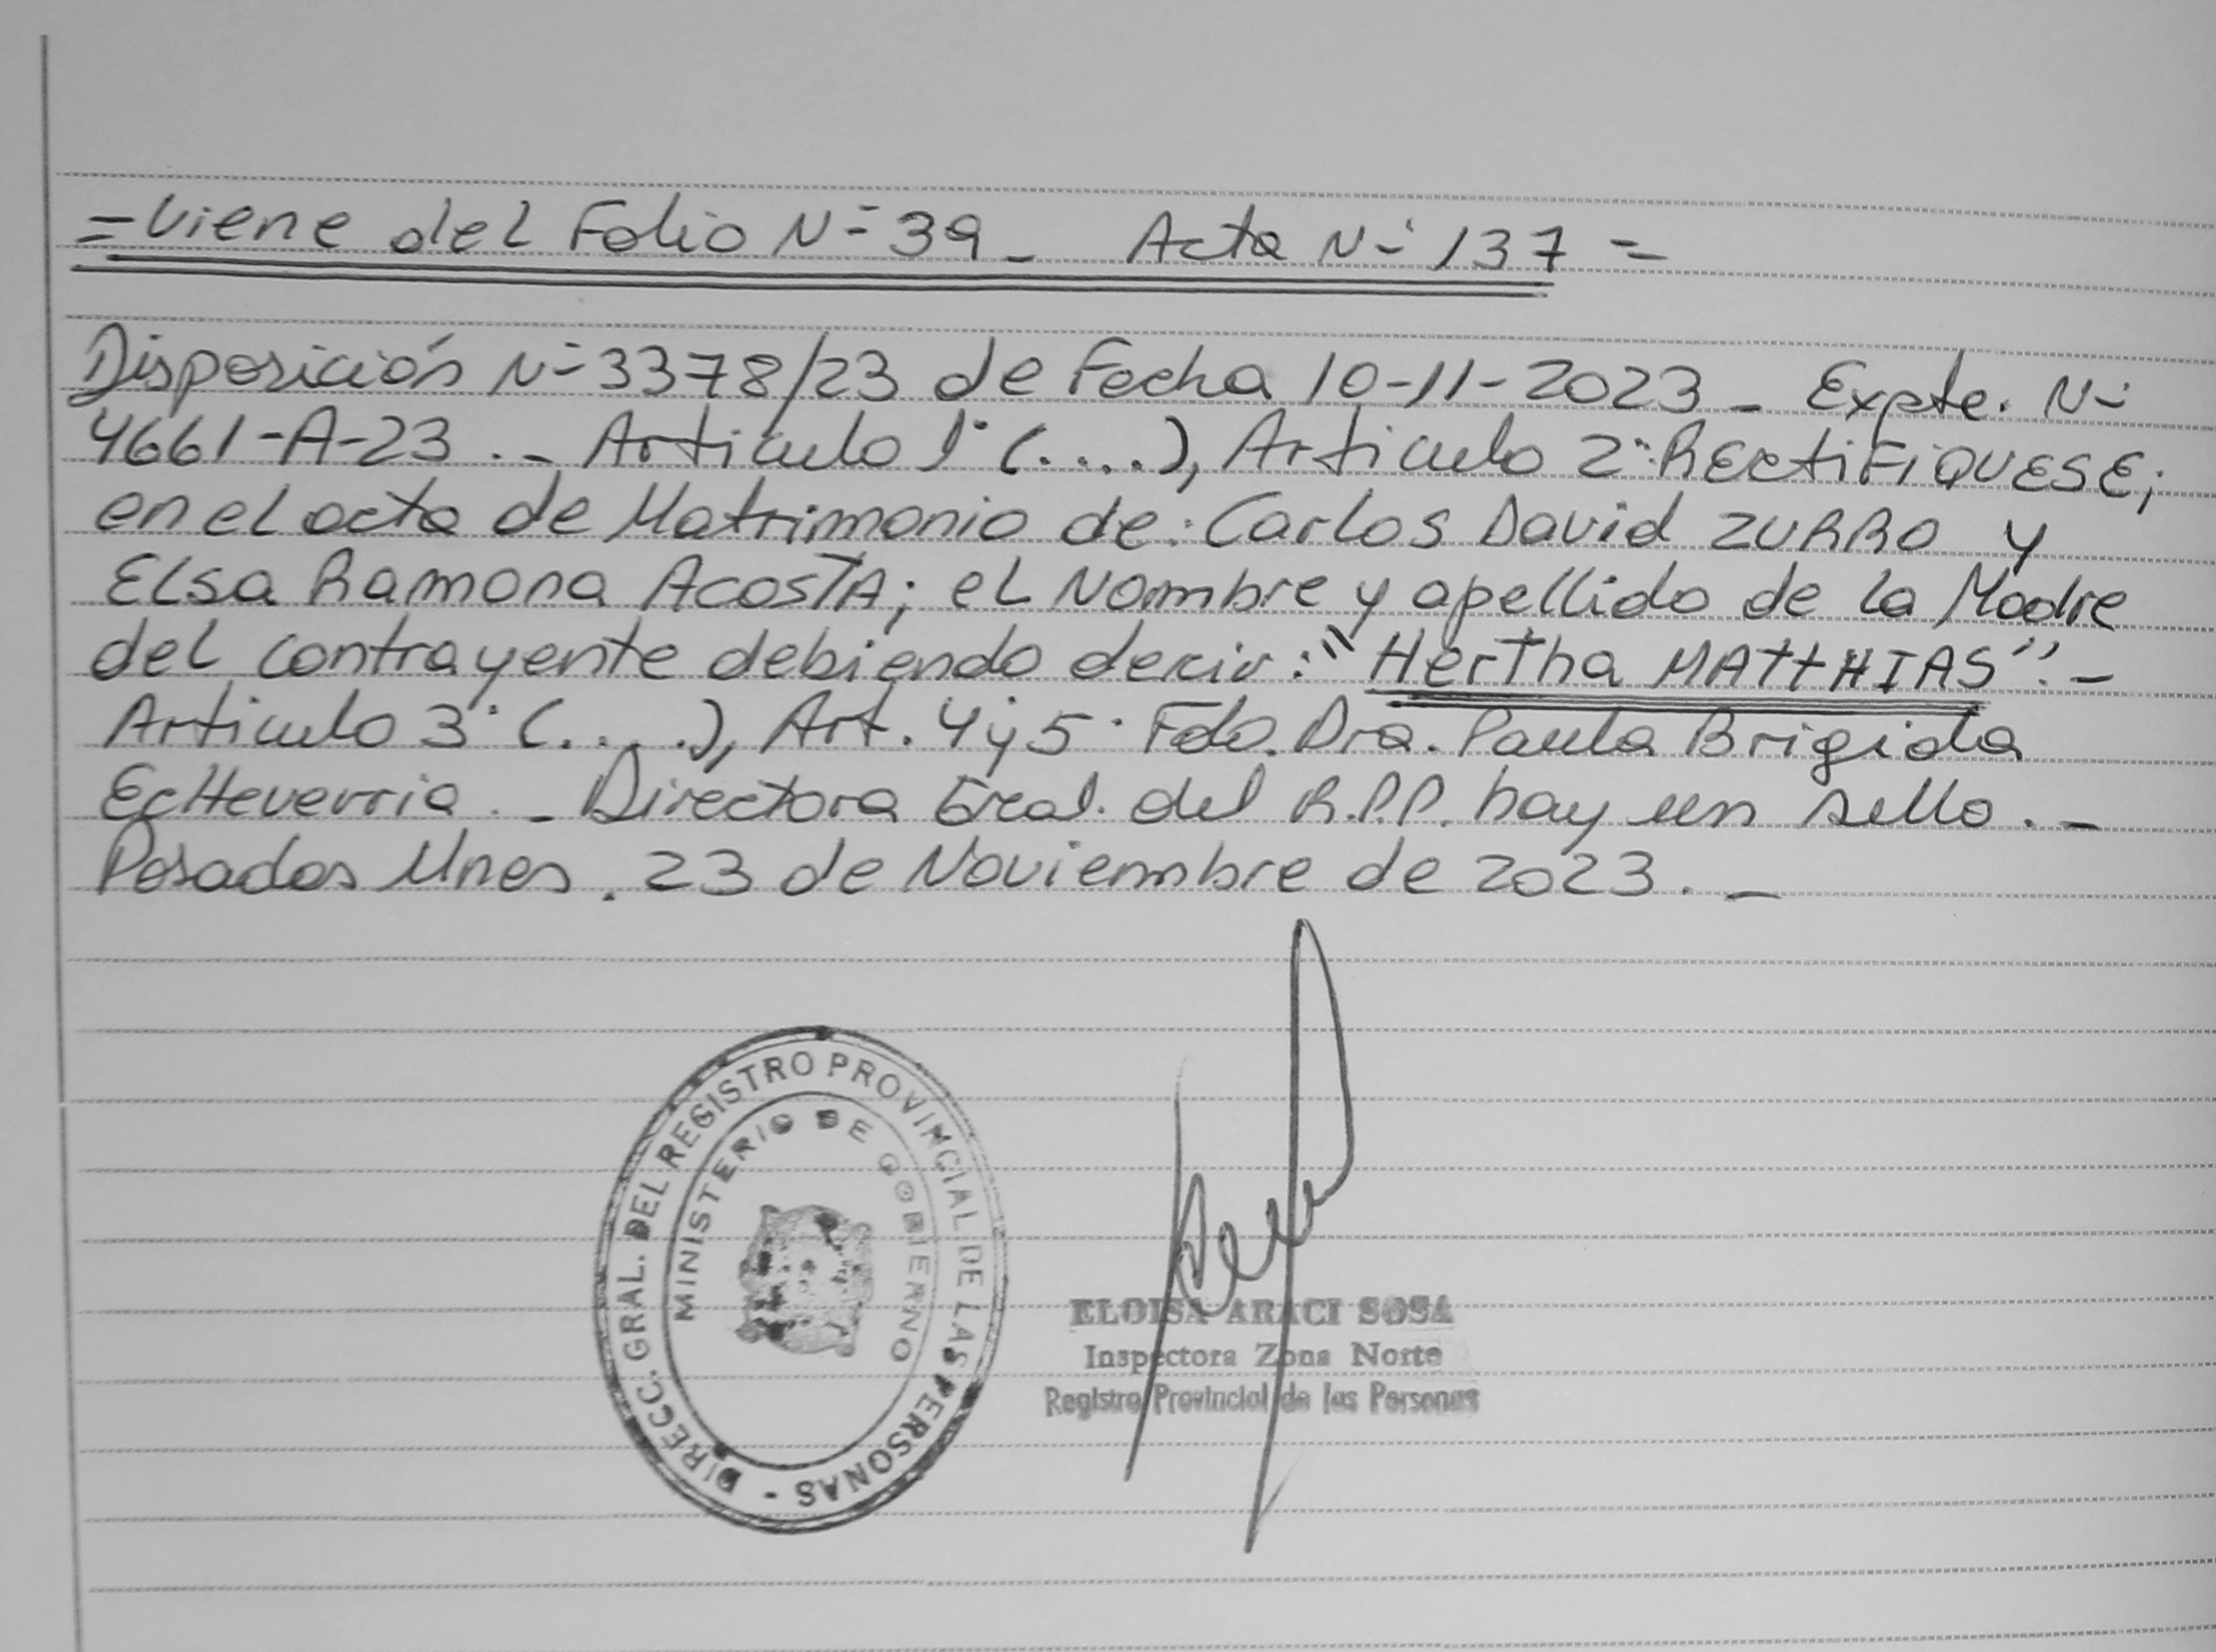 = Viene del Folio N° 39 _ Acta N° 137 =
Disposición N° 3378/23 de Fecha 10-11-2023 _ Expte. N°
4661-A-23 ._ Articulo 1° (....), Articulo 2°: RECtiFiQUESE;
en el acta de Matrimonio de: Carlos David ZURRO y
Elsa Ramona Acosta; el Nombre y apellido de la Madre
del contrayente debiendo decir: "Hertha MATTHIAS". _
Articulo 3° (....), Art. 4 y 5° Fdo. Dra. Paula Brigida
Echeverria. _ Directora Gral. del R.P.P. hay un sello. _
Posadas Mnes, 23 de Noviembre de 2023. _
DIRECC. GRAL. DEL REGISTRO PROVINCIAL DE LAS PERSONAS -
MINISTERIO DE GOBIERNO
ELOISA ARACI SOSA
Inspectora Zona Norte
Registro Provincial de las Personas